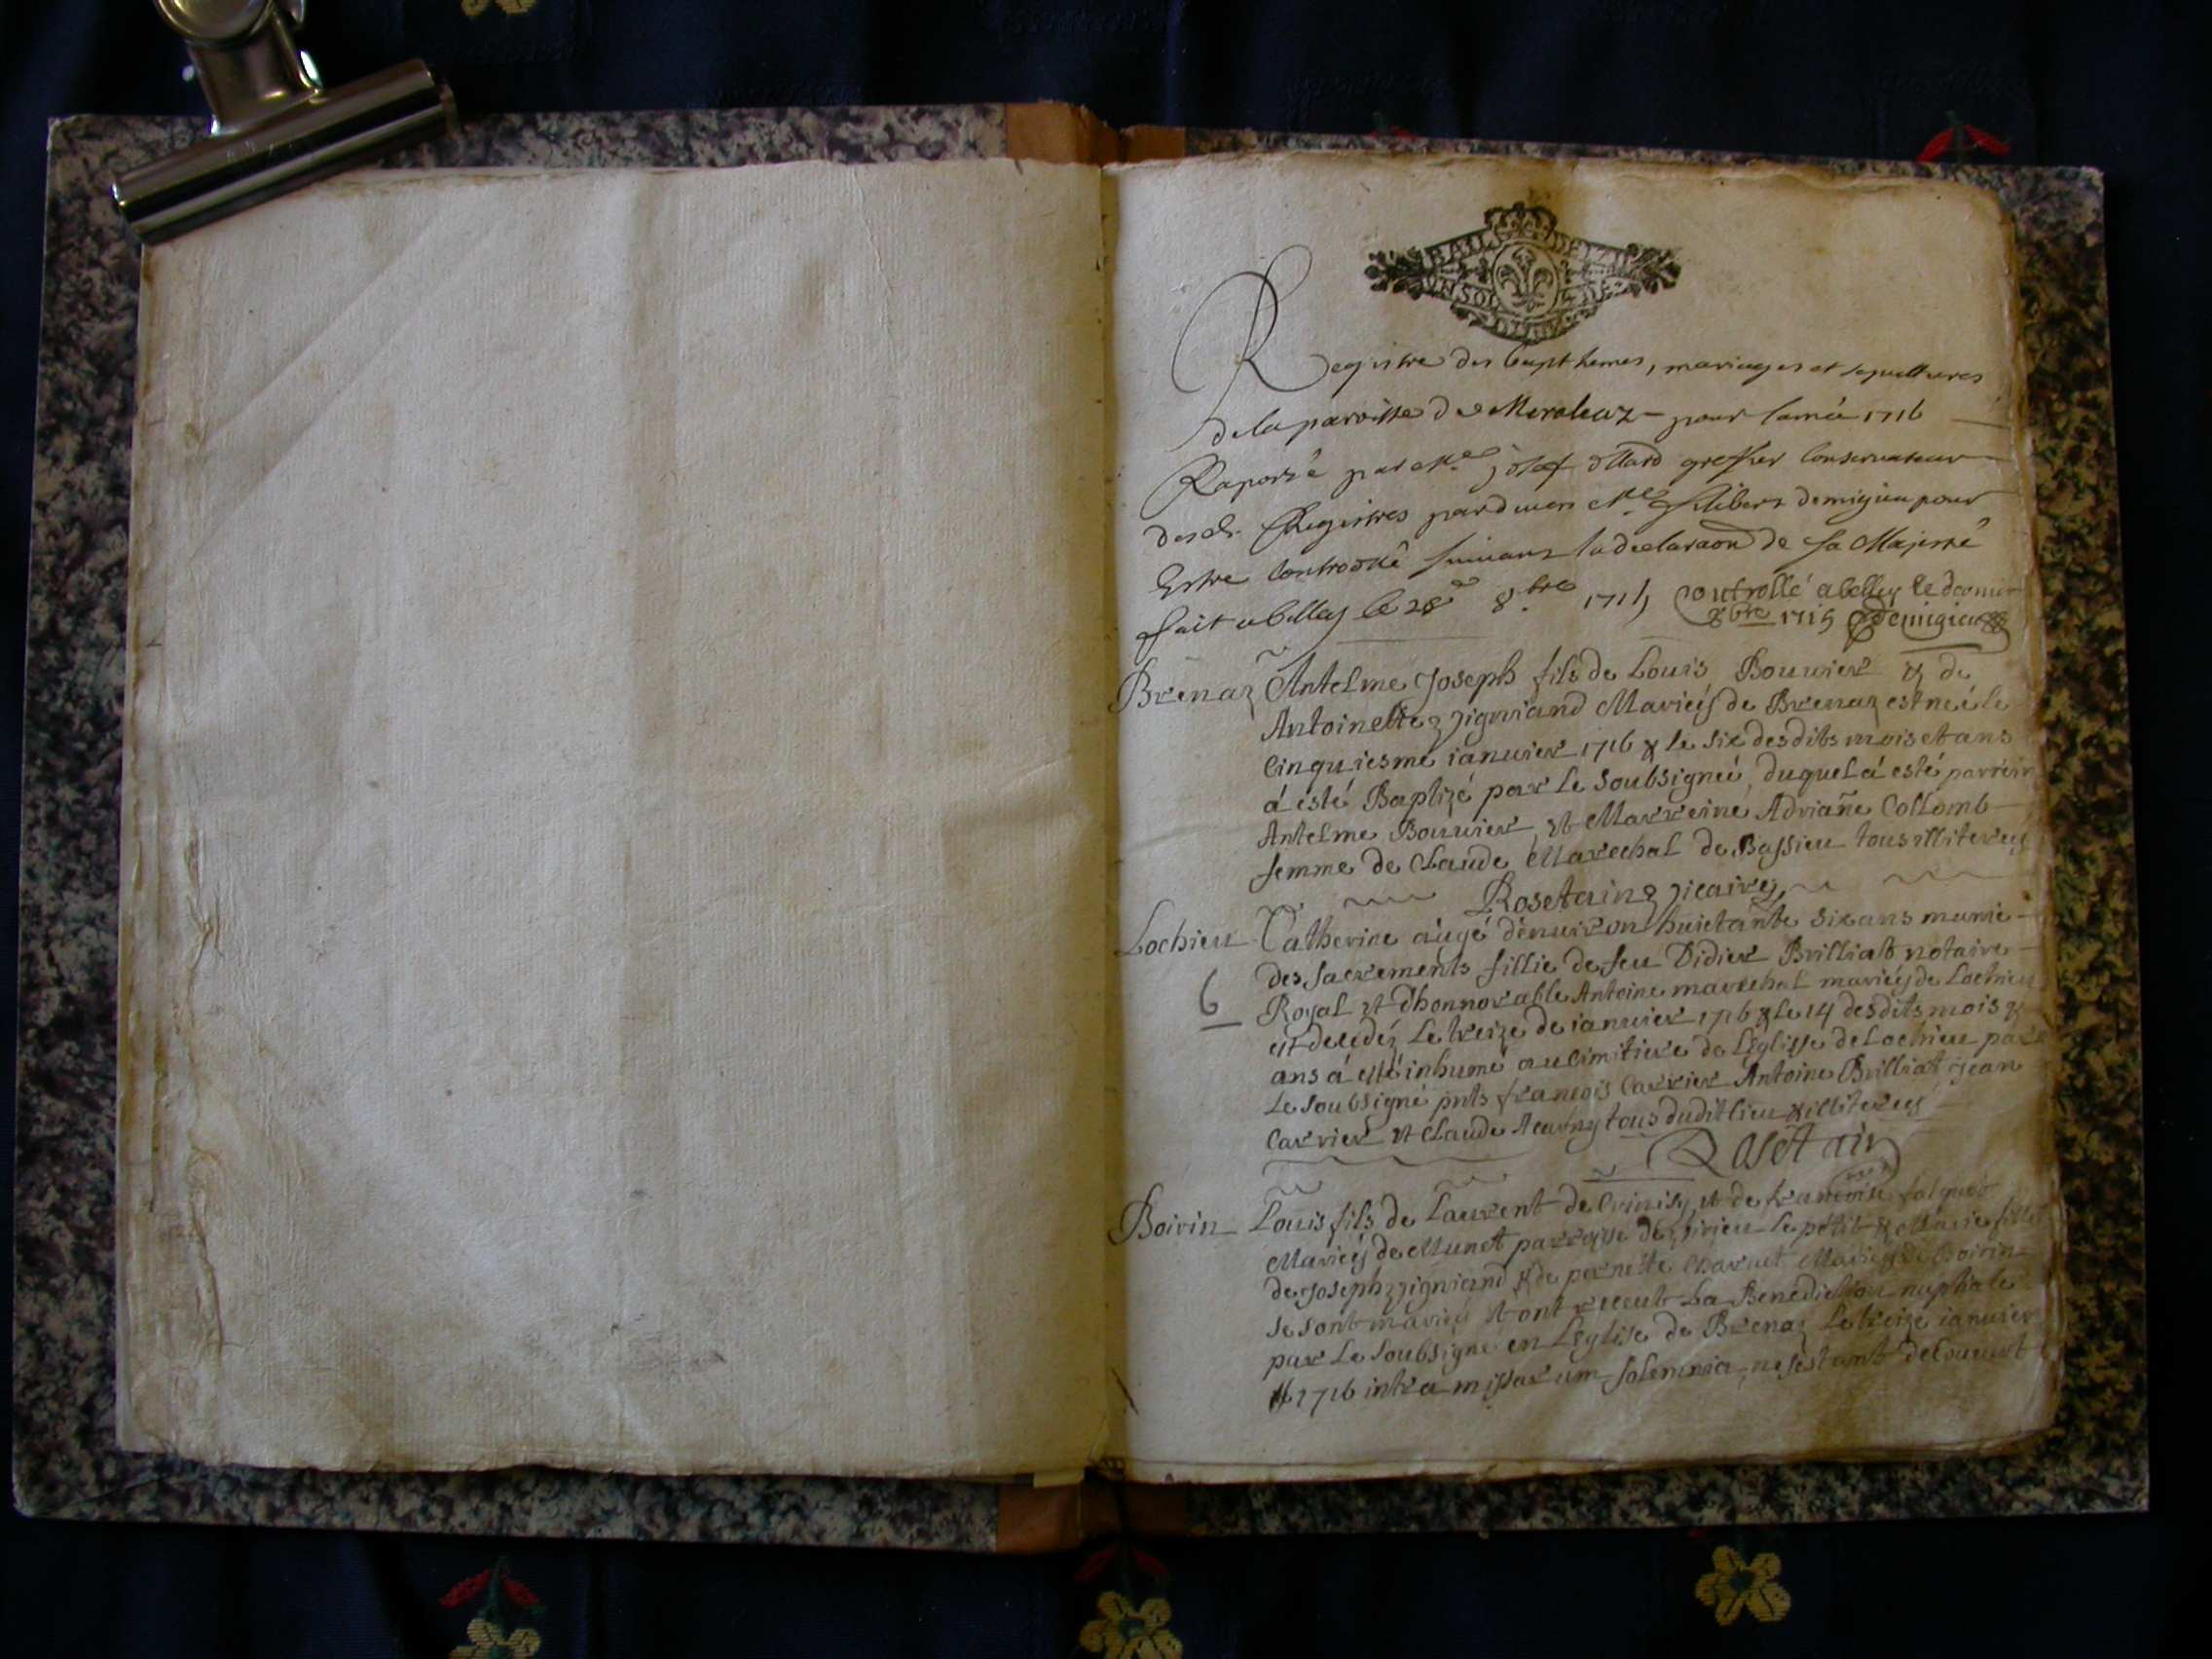 Registre des bapthemes, mariages et sepultures
de la paroisse de pour lanneé 1716
Raporté par Me josef ollard greffier Conservateur
desd. Registres pardevers Me filibert demigieu pour
Estre Controollé suivant la declaraon de sa Majesté
fait a belley le 28e 8.bre 1715 Controllé a belley le dernier
8bre 1715 demigieu
Brenaz Antelme Joseph fils de Louis Bouvier & de
Antoinette vigniand Mariéş de Brenaz est neé le
Cinquiesme ianvier 1716 & le six desdits mois et ans
á esté Baptizé par le soubsigneé, duquel á esté parrein
Antelme Bouvier, et Marreine Adriañe Collomb
femme de Claude Marechal de Bassieu tous illitereş
Rosetaing vicaire
Lochieu Catherine áugé dénviron huictante six ans munie
des sacrements fillie de feu Didier Brilliat notaire
6 Royal et dhonnorable Antoine marechal marieéş de Lochieu
est decedéz le treize de ianvier 1716 & le 14 desdits mois &
ans á esté inhumé au Cimitiere de Léglisse de Lochieu par
Le soubsigné pnts francois Carrier Antoine Brilliat jean
Carrier et Claude tous dudit lieu & illitereş
Rosetain
Boirin Louis fils de Laurent de et de francoise
Marieéş de Munet parroisse de virieu le petit & Marie fille
de Joseph vigniand & de pernette Charvet Marieéş de Boirin
se sont mariéş et ont receut La Benediction nuptiale
par Le soubsigné en Léglise de Brenaz Le treize ianvier
1716 intra missarum solemnia, ne sestant decouvert